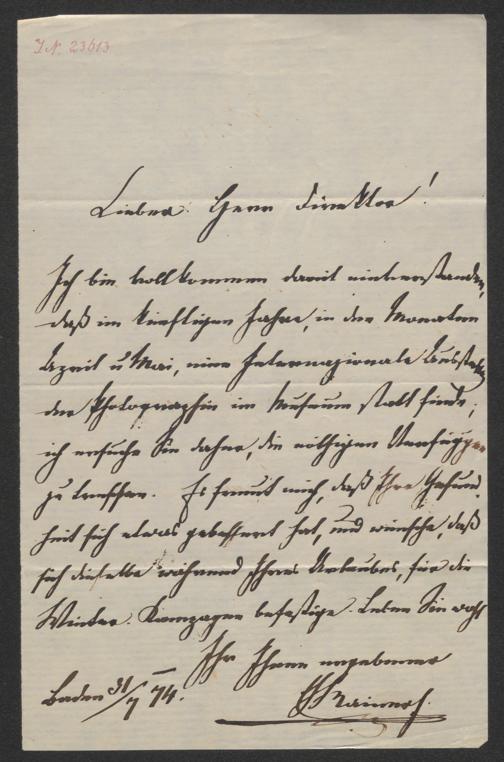 J. N. 23613
Lieber Herr Direktor!
Ich bin vollkommen damit einverstanden,
daß im künftigen Jahre, in den Monaten
April u Mai, eine Internazionale Ausstellg
der Photographie im Museum statt finde;
ich ersuche Sie daher, die nöthigen Verfüggen
zu treffen. Es freut mich, daß Ihre Gesund
heit sich etwas gebessert hat, und wünsche, daß
sich dieselbe während Ihres Urlaubes, für die
Winter Kampagne befestige. Leben Sie wohl
Ihr Ihnen ergebener
Baden 31/7 74.